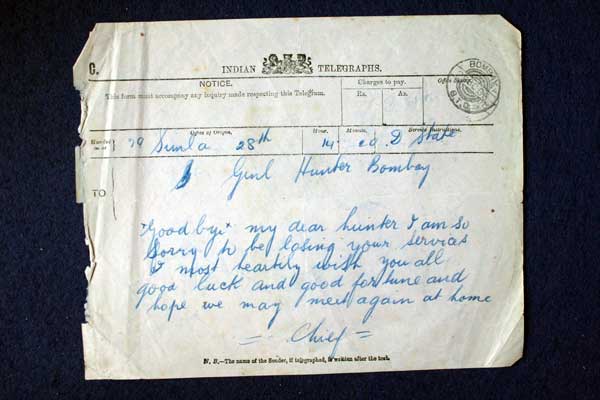 C.
INDIAN TELEGRAPHS.
NOTICE.
This form must accompany any inquiry made respecting this Telegram.
Charges to pay.
Rs. As.
Office Stamp.
BOMBAY
Number
Office of Origin. Hour. Minute. Service Instructions.
79 Simla 28th 14 20 D State
TO
Genl Hunter Bombay
Goodbye my dear hunter I am so
sorry to be losing your services
& most heartily wish you all
good luck and good fortune and
hope we may meet again at home
= Chief =
N. B.—The name of the Sender, if telegraphed, is written after the text.